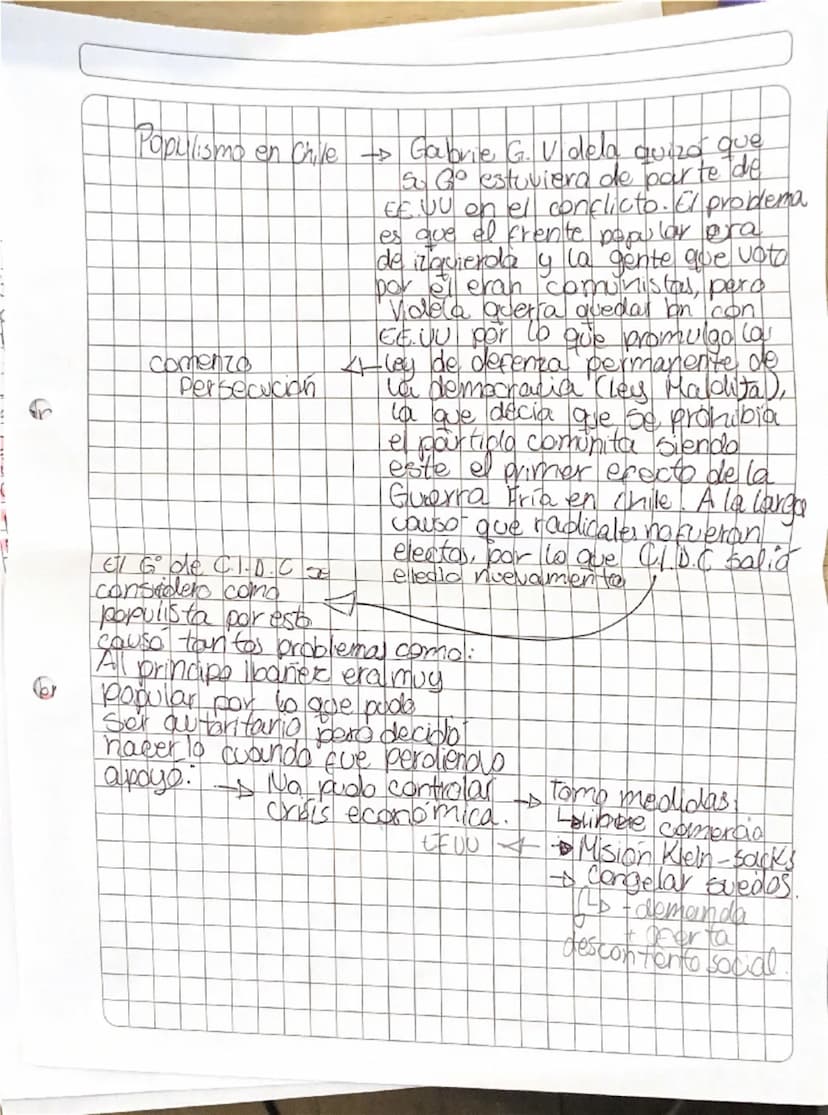 Populismo en Chile → Gabrie G. Videla quizó que
su Gº estuviera de parte de
EE.UU en el conflicto. El problema
es que el frente popular era
de izquierda y la gente que voto
por él eran comunistas, pero
Videla quería quedar bn con
EE.UU por lo que promulgo la
ley de defenza permanente de
la democracia (ley Maldita),
la que decia que se prohibia
el partido comunita siendo
este el primer efecto de la
Guerra Fría en Chile. A la larga
causo que radicales no fueran
electos, por lo que C.I.D.C salió
eledio nuevamente
comenzo
persecución
El Gº de C.I.D.C se
considero como
populista por esto
causó tantos problemas como:
Al principo Ibañez era muy
popular por lo que pudo
ser autoritario pero decidio
hacerlo cuando fue perdiendo
apoyo: → No pudo controlar
crisis económica.
→ Tomo medidas:
↳ libre comercio
EEUU ← → Misión Klein-sacks
→ congelar sueldos.
↳ - demanda
+ oferta
descontento social.